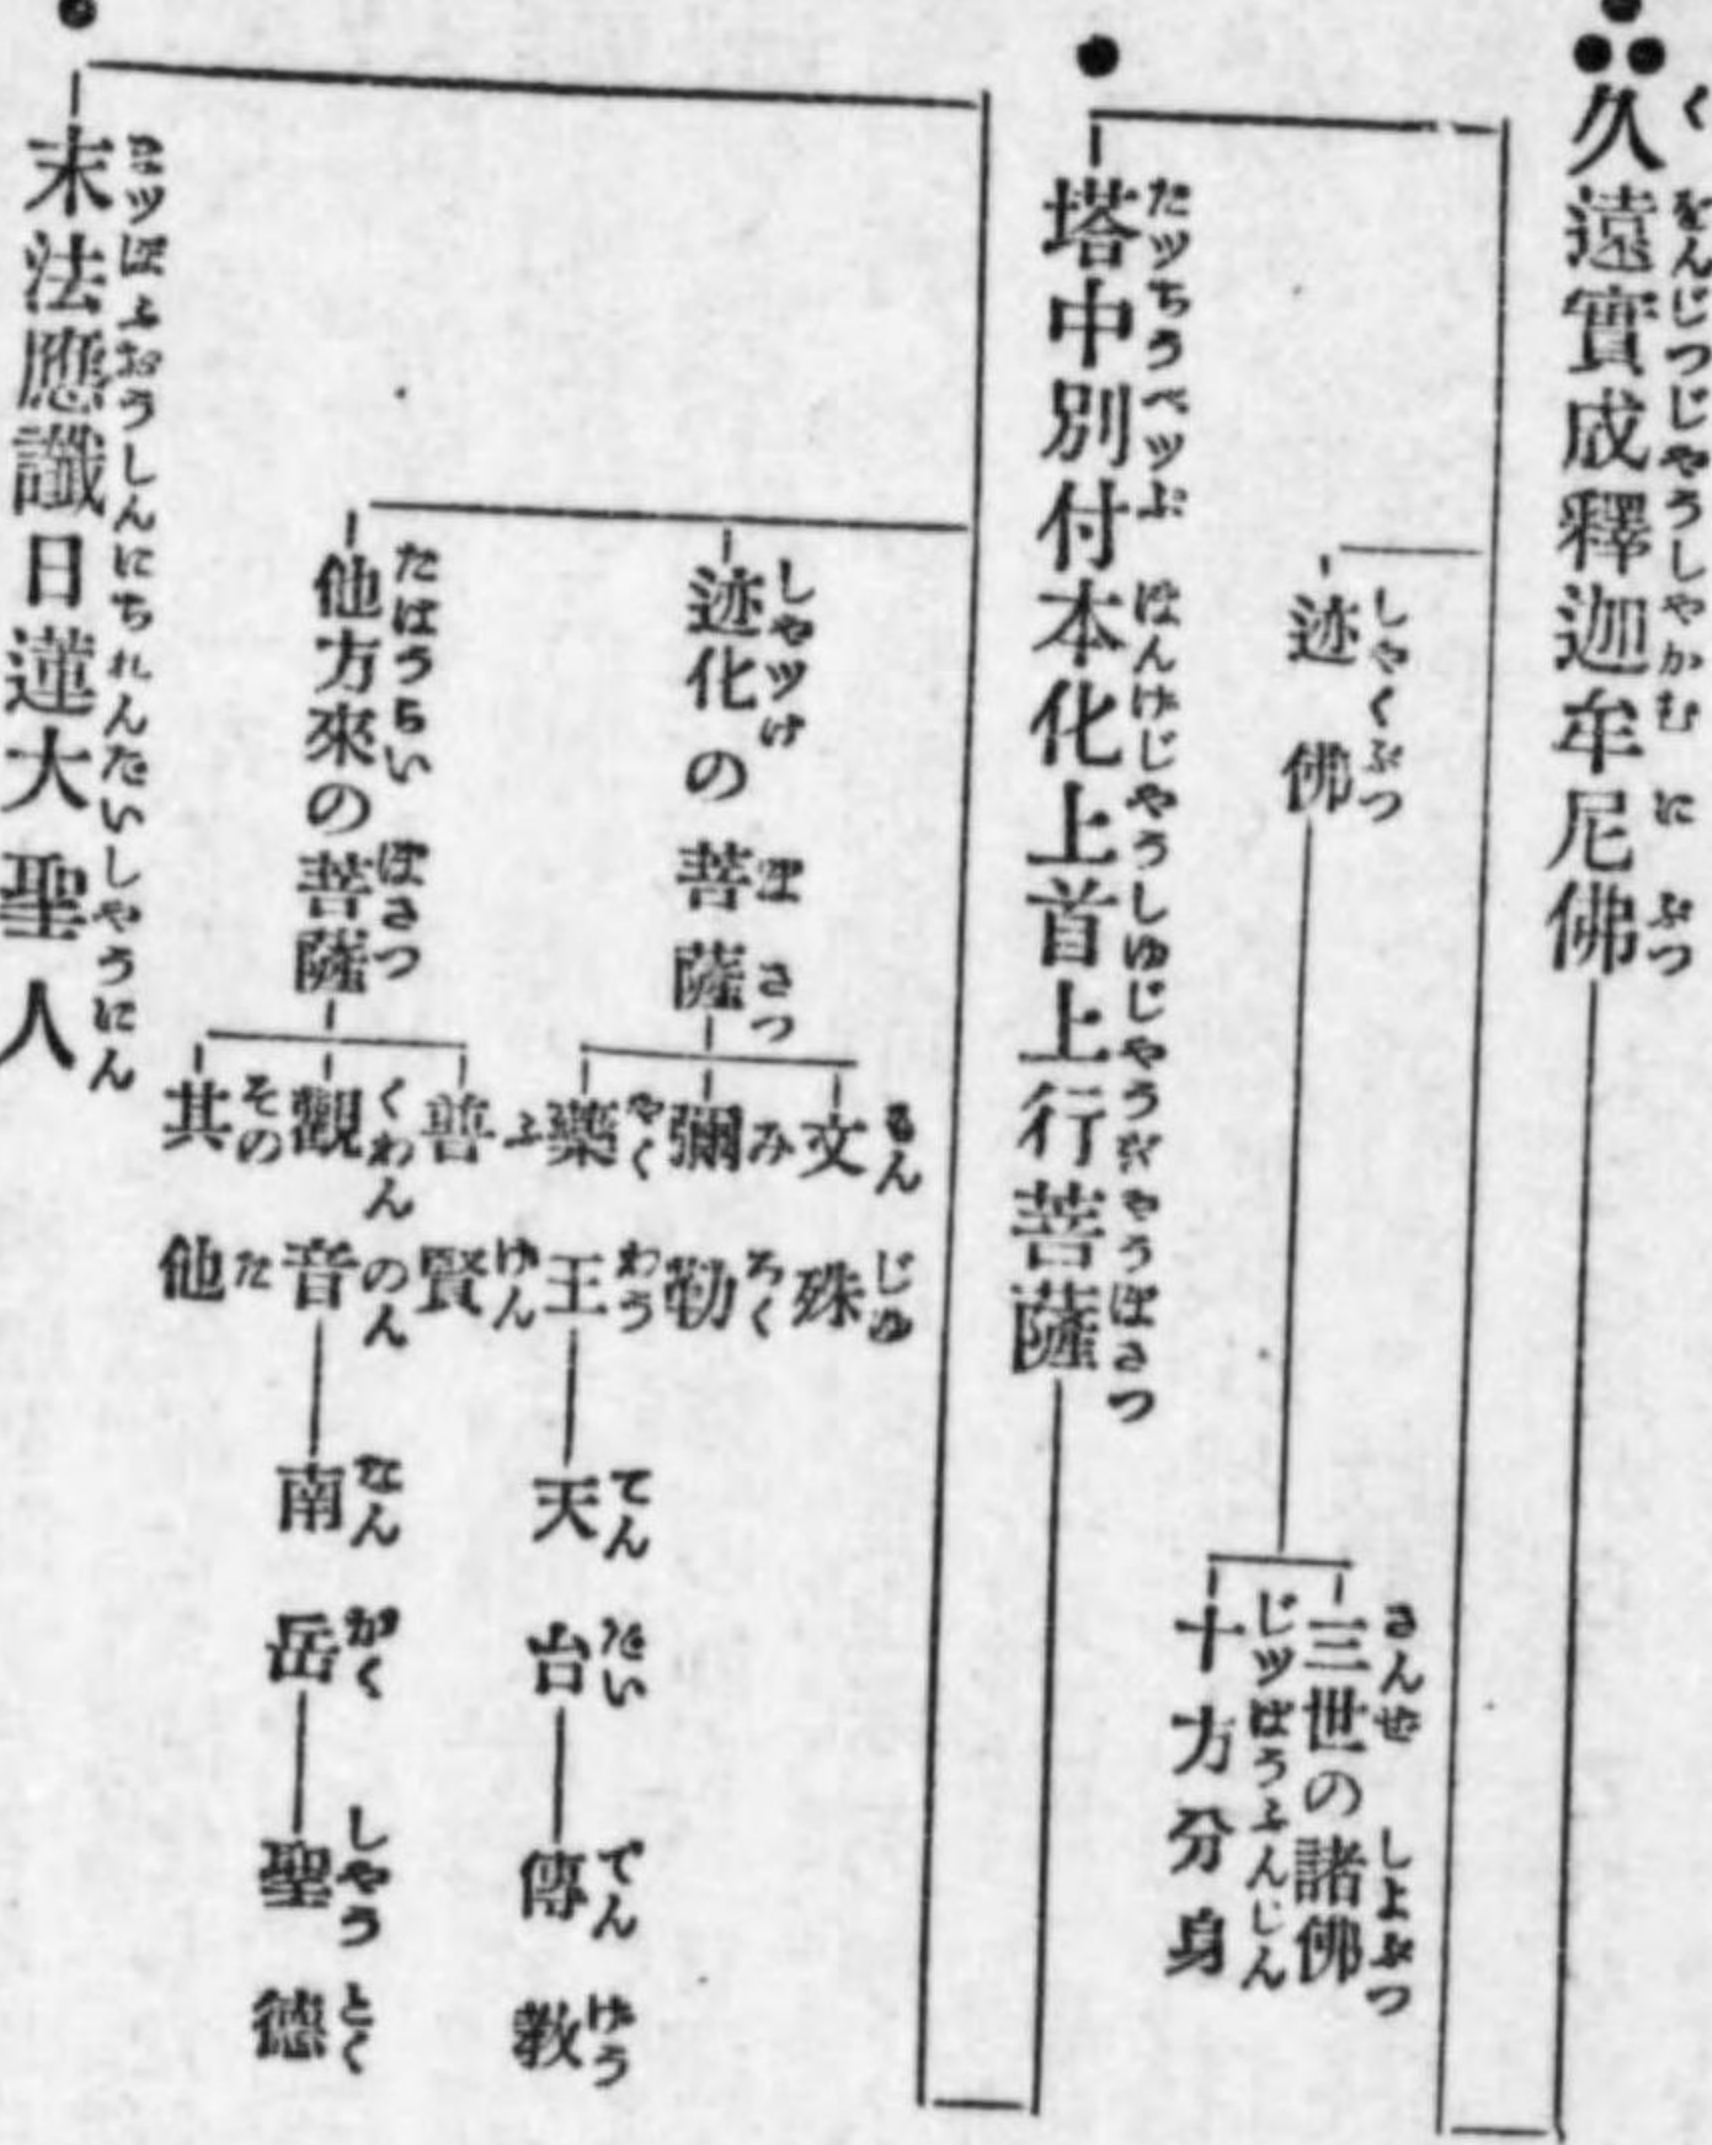 久遠實成釋迦牟尼佛
くをんじつじやうしやかむにぶつ
迹佛
しやくぶつ
三世の諸佛
さんぜしよぶつ
十方分身
じツぱうふんじん
塔中別付本化上首上行菩薩
たツちうべツぷほんげじやうしゆじやうぎやうぼさつ
迹化の菩薩
しやツけぼさつ
文殊
もんじゆ
彌勒
みろく
藥王
やくわう
天台
てんだい
傳教
でんげう
他方來の菩薩
たはうらいぼさつ
普賢
ふげん
觀音
くわんのん
南岳
なんがく
聖德
しやうとく
其他
そのた
末法應讖日蓮大聖人
マツぽふおうしんにちれんだいしやうにん